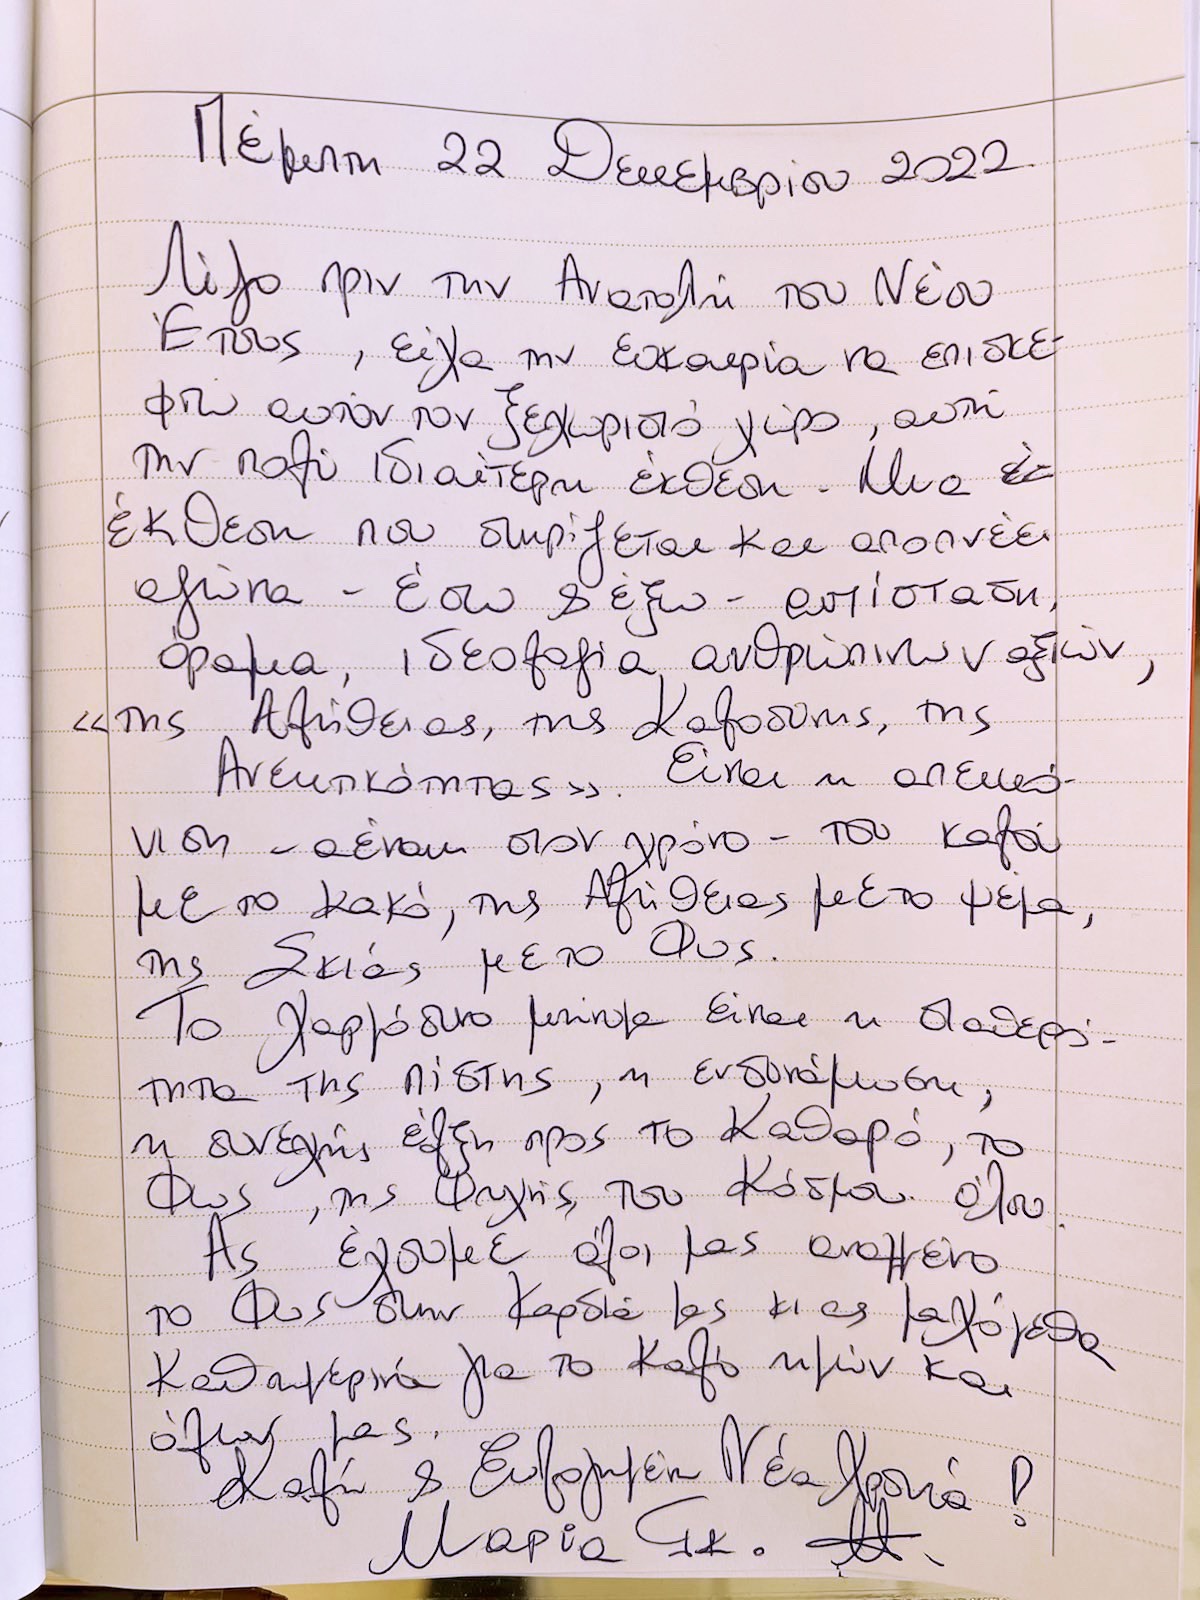 Πέμπτη 22 Δεκεμβρίου 2022
Λίγο πριν την Ανατολή του Νέου
Έτους, είχα την ευκαιρία να επισκε-
φτω αυτόν τον ξεχωριστό χώρο, αυτή
την πολύ ιδιαίτερη έκθεση. Μια
έκθεση που στηρίζεται και αποπνέει
αγώνα - έσω & έξω - αντίσταση,
όραμα, ιδεολογία ανθρώπινων αξιών,
«της Αλήθειας, της Καλοσύνης, της
Ανεκτικότητας». Είναι η απεικό-
νιση - αέναη στον χρόνο - του καλού
με το κακό, της Αλήθειας με το ψέμα,
της Σκιάς με το Φως.
Το χαρμόσυνο μήνυμα είναι η σταθερό-
τητα της πίστης, η ενδυνάμωση,
η συνεχής έλξη προς το Καθαρό, το
Φως, της Ψυχής, του Κόσμου όλου.
Ας έχουμε όλοι μας αναμμένο
το Φως στην Καρδιά μας κι ας μαχόμεθα
Καθημερινά για το Καλό ημών και
όλων μας.
Καλή & Ευλογημένη Νέα Χρονιά!
Μαρία Γκ.